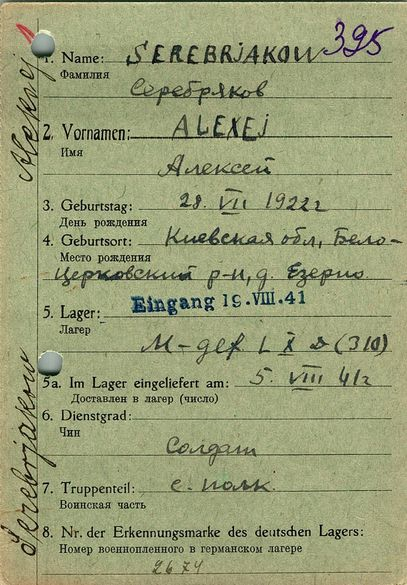 395
1. Name: SEREBRJAKOW
Фамилия
Серебряков
2. Vornamen: ALEXEJ
Имя
Алексей
3. Geburtstag: 28. VII 1922г
День рождения
4. Geburtsort: Киевская обл, Бело-
Место рождения
церковский р-н, д. Езерно
5. Lager: Eingang 19. VIII. 41
Лагерь
M- L X D (310)
5a. Im Lager eingeliefert am: 5. VIII 41г
Доставлен в лагер (число)
6. Dienstgrad:
Чин
Солдат
7. Truppenteil: с. полк.
Воинская часть
8. Nr. der Erkennungsmarke des deutschen Lagers:
Номер военнопленного в германском лагере
2674
Serebrjakow Alexej